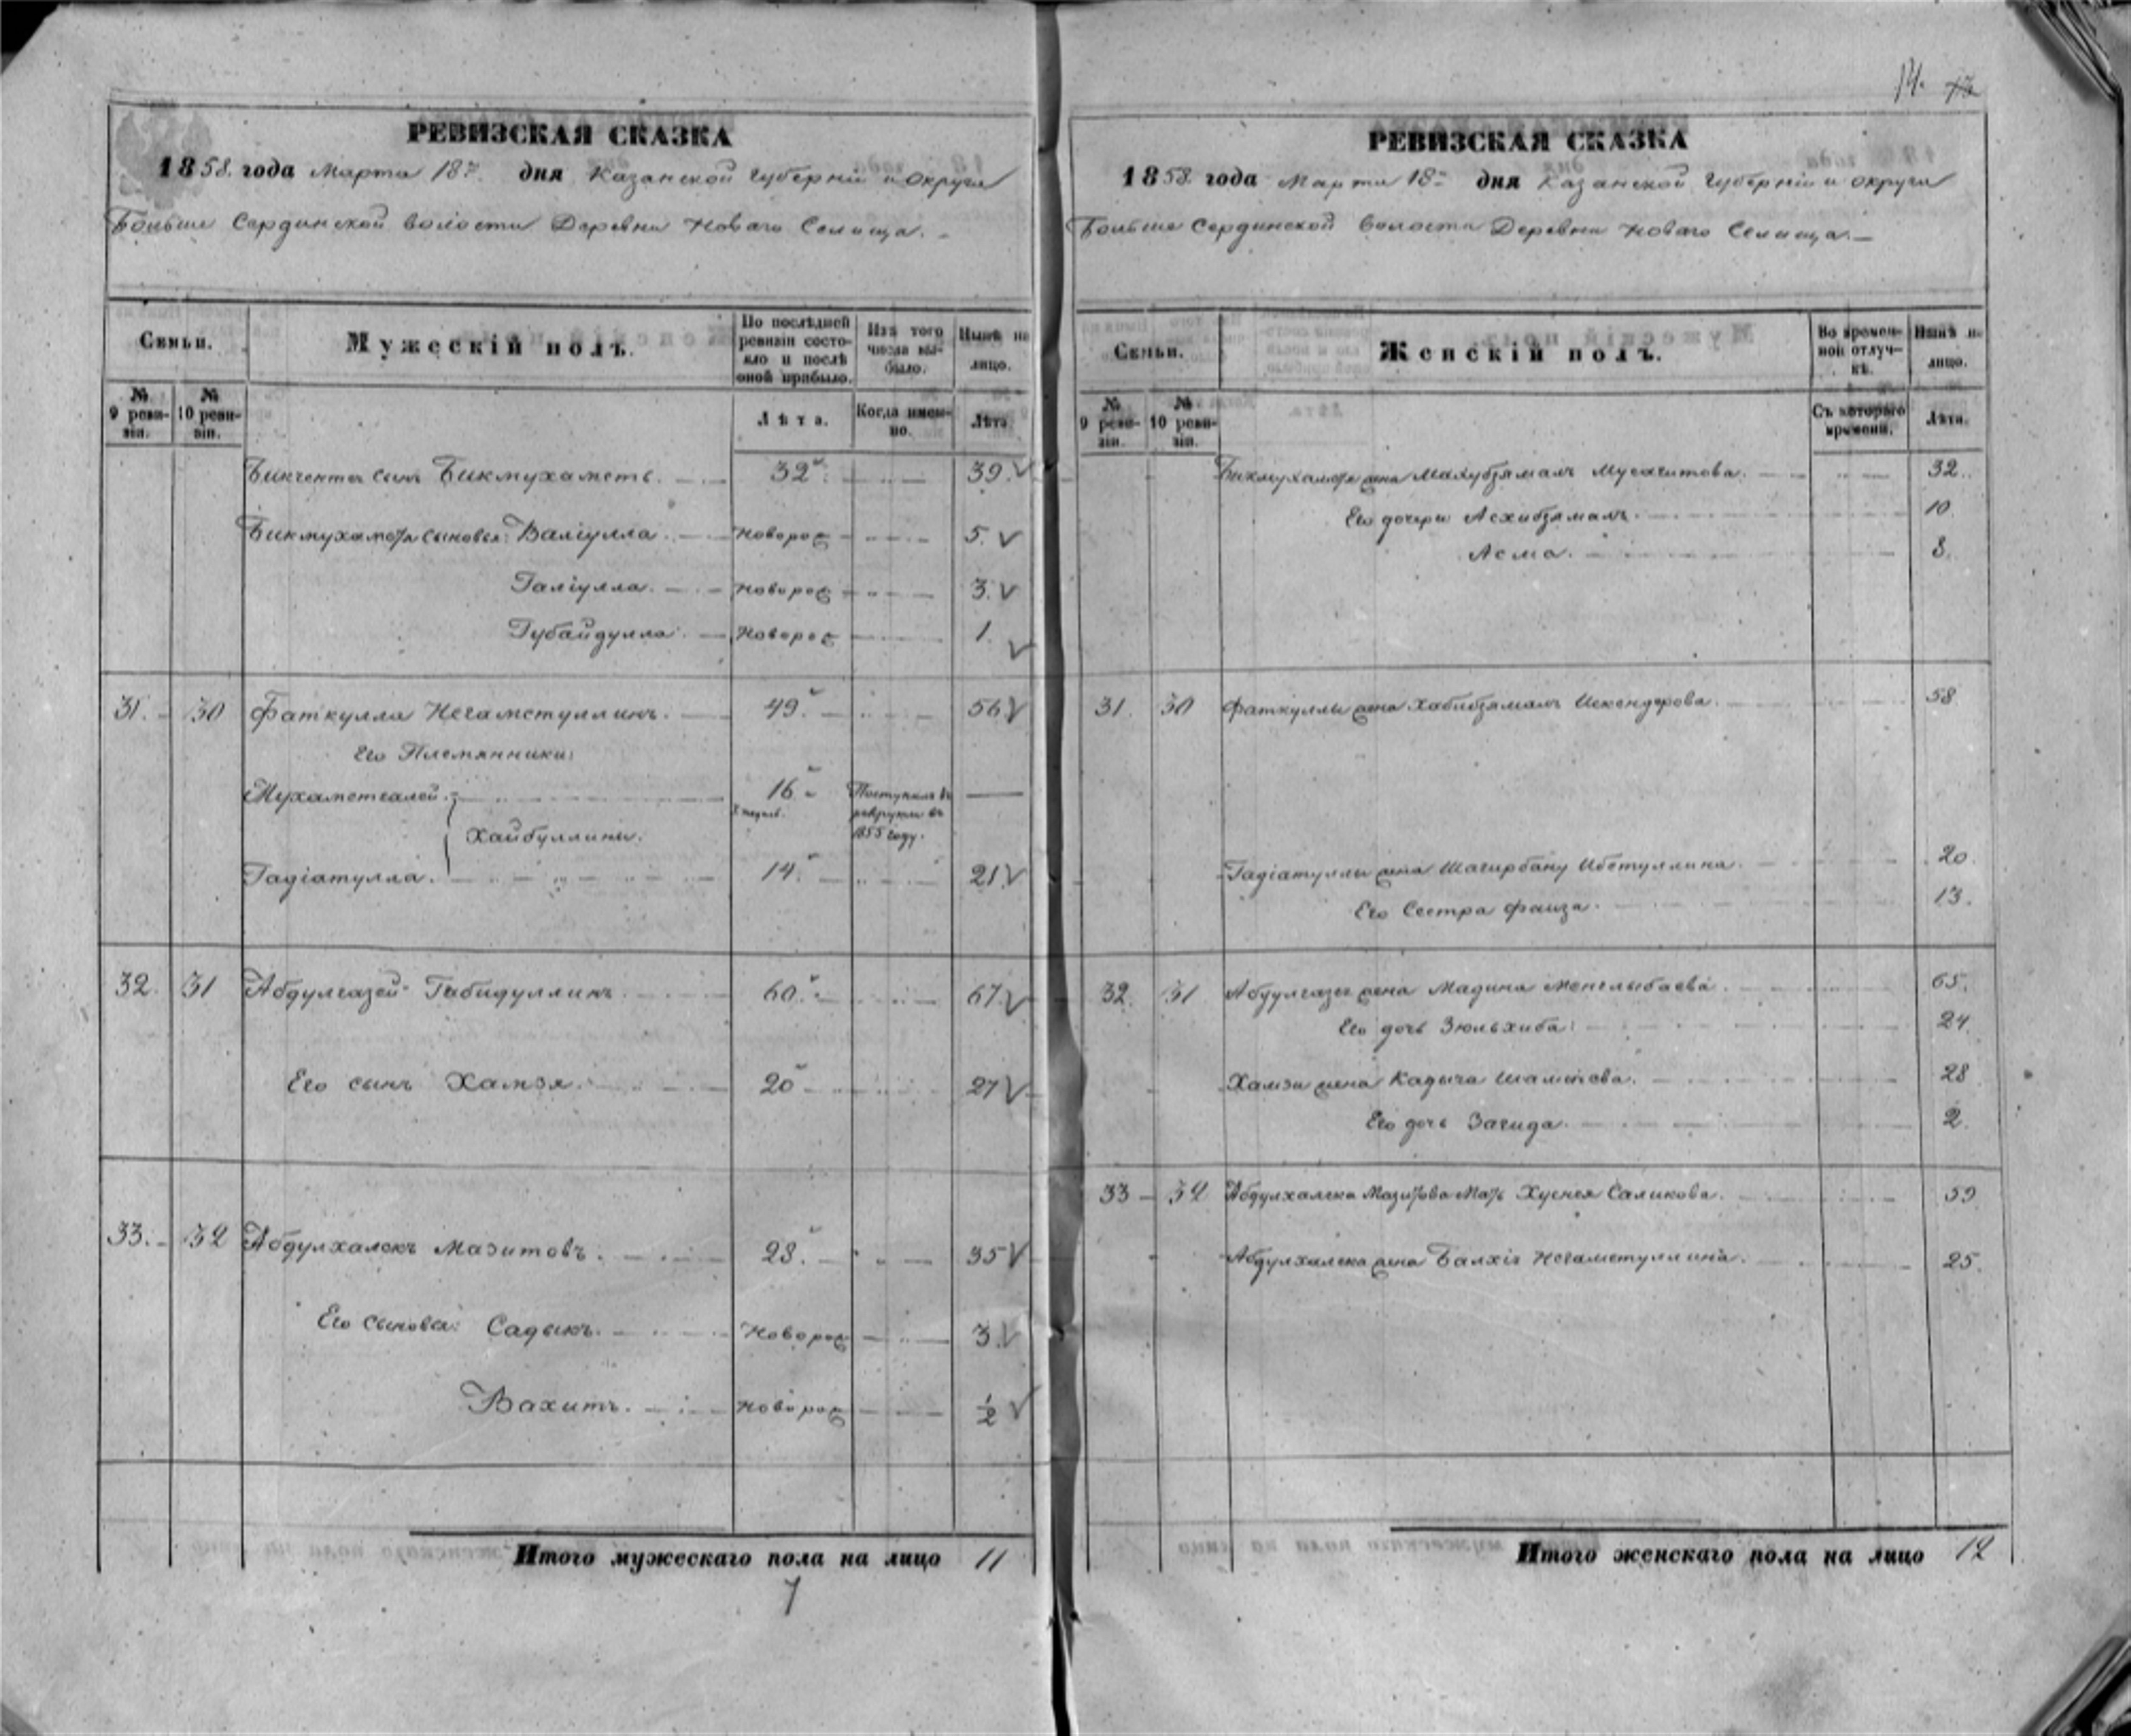 14. 13
РЕВИЗСКАЯ СКАЗКА
1858. года Марта 18. дня Казанской Губерніи и округа
Больше Сердинской волости Деревни Новаго Селища.
Семьи.
Мужескій полъ.
По послѣдней ревизіи состояло и послѣ оной прибыло.
Изъ того числа выбыло.
Нынѣ на лицо.
№ 9 ревизіи.
№ 10 ревизіи.
Лѣта.
Когда именно.
Лѣта.
Бикчентея сынъ Бикмухаметь. 32. 39.
Бикмухаметя сыновья: Валіулла. Новорож 5.
Галіулла. Новорож 3.
Губайдулла. Новорож 1.
31. 30 Фаткулла Негаметуллинъ. 49. 56.
Его Племянники:
Мухаметгалей. 16. Поступилъ въ рекруты въ 1855 году.
Хайбуллины.
Гадіатулла. 14. 21.
32. 31 Абдулгазей Габидуллинъ. 60. 67.
Его сынъ Хамзя. 20 27
33. 32 Абдулхалекъ Мазитовъ. 28. 35
Его сыновья: Садыкъ. Новорож 3.
Вахитъ. Новорож ½
Итого мужескаго пола на лицо 11
7
РЕВИЗСКАЯ СКАЗКА
1858. года Марта 18 дня Казанской Губерніи и округа
Больше Сердинской волости Деревни Новаго Селища.
Семьи.
Женскій полъ.
Во временной отлучкѣ.
Нынѣ на лицо.
№ 9 ревизіи.
№ 10 ревизіи.
Съ котораго времени.
Лѣта.
Бикмухаметя жена Махубзямалъ Мусагитова. 32.
Его дочери Асхибзямалъ. 10.
Асма. 8.
31. 30 Фаткуллы жена Хабибзямалъ Искендерова. 58
Гадіатуллы жена Шагирбану Ибетуллина 20
Его Сестра Фаиза. 13.
32. 31 Абдулгазея жена Мадина Менглыбаева. 65.
Его дочь Зюльхиба: 24.
Хамзи жена Кадыча Шаметова. 28
Его дочь Загида. 2.
33 32 Абдулхалека Мазитова Мать Хуснея Саликова. 59
Абдулхалека жена Балхія Негаметуллина. 25.
Итого женскаго пола на лицо 12